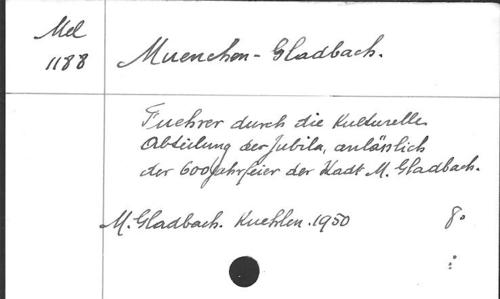 Mel
1188
Muenchen-Gladbach.
Fuehrer durch die Kulturelle
Abteilung der Jubila, anlässlich
der 600 Jahrfeier der Stadt M. Gladbach.
M. Gladbach. Kuehlen. 1950 8°